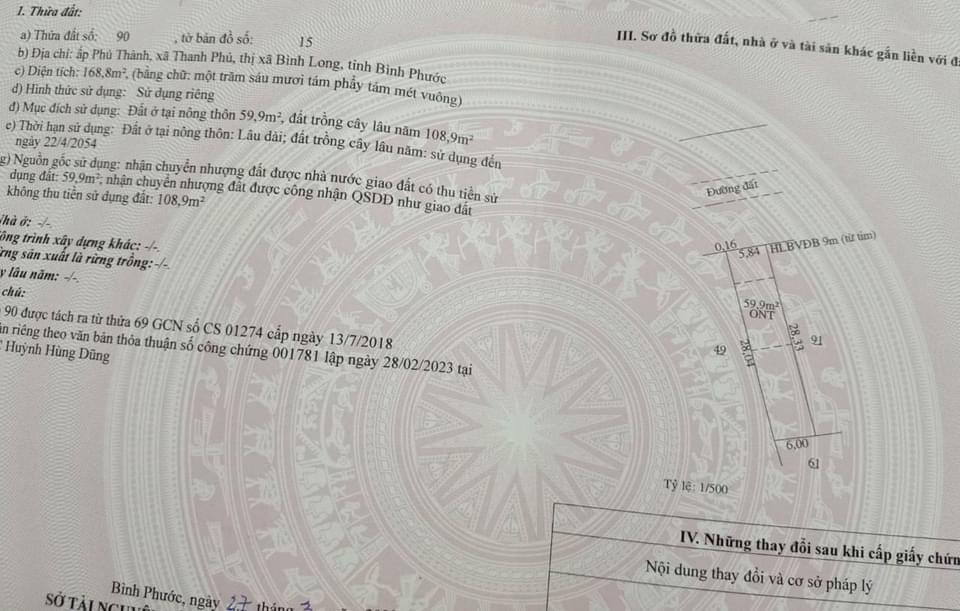 1. Thửa đất:
a) Thửa đất số: 90 , tờ bản đồ số: 15
b) Địa chỉ: ấp Phú Thành, xã Thanh Phú, thị xã Bình Long, tỉnh Bình Phước
c) Diện tích: 168,8m², (bằng chữ: một trăm sáu mươi tám phẩy tám mét vuông)
d) Hình thức sử dụng: Sử dụng riêng
đ) Mục đích sử dụng: Đất ở tại nông thôn 59,9m², đất trồng cây lâu năm 108,9m²
e) Thời hạn sử dụng: Đất ở tại nông thôn: Lâu dài; đất trồng cây lâu năm: sử dụng đến
ngày 22/4/2054
g) Nguồn gốc sử dụng: nhận chuyển nhượng đất được nhà nước giao đất có thu tiền sử
dụng đất: 59,9m²; nhận chuyển nhượng đất được công nhận QSDĐ như giao đất
không thu tiền sử dụng đất: 108,9m²
hà ở: -/-
ông trình xây dựng khác: -/-.
ừng sản xuất là rừng trồng: -/-.
y lâu năm: -/-.
chú:
90 được tách ra từ thửa 69 GCN số CS 01274 cấp ngày 13/7/2018
ản riêng theo văn bản thỏa thuận số công chứng 001781 lập ngày 28/02/2023 tại
Huỳnh Hùng Dũng
Bình Phước, ngày 27 tháng 3
SỞ TÀI NGUYÊ
III. Sơ đồ thửa đất, nhà ở và tài sản khác gắn liền với đ
Đường đất
0,16
5,84 HLBVĐB 9m (từ tim)
59,9m²
ONT
49
28,04
28,33
91
6,00
61
Tỷ lệ: 1/500
IV. Những thay đổi sau khi cấp giấy chứn
Nội dung thay đổi và cơ sở pháp lý